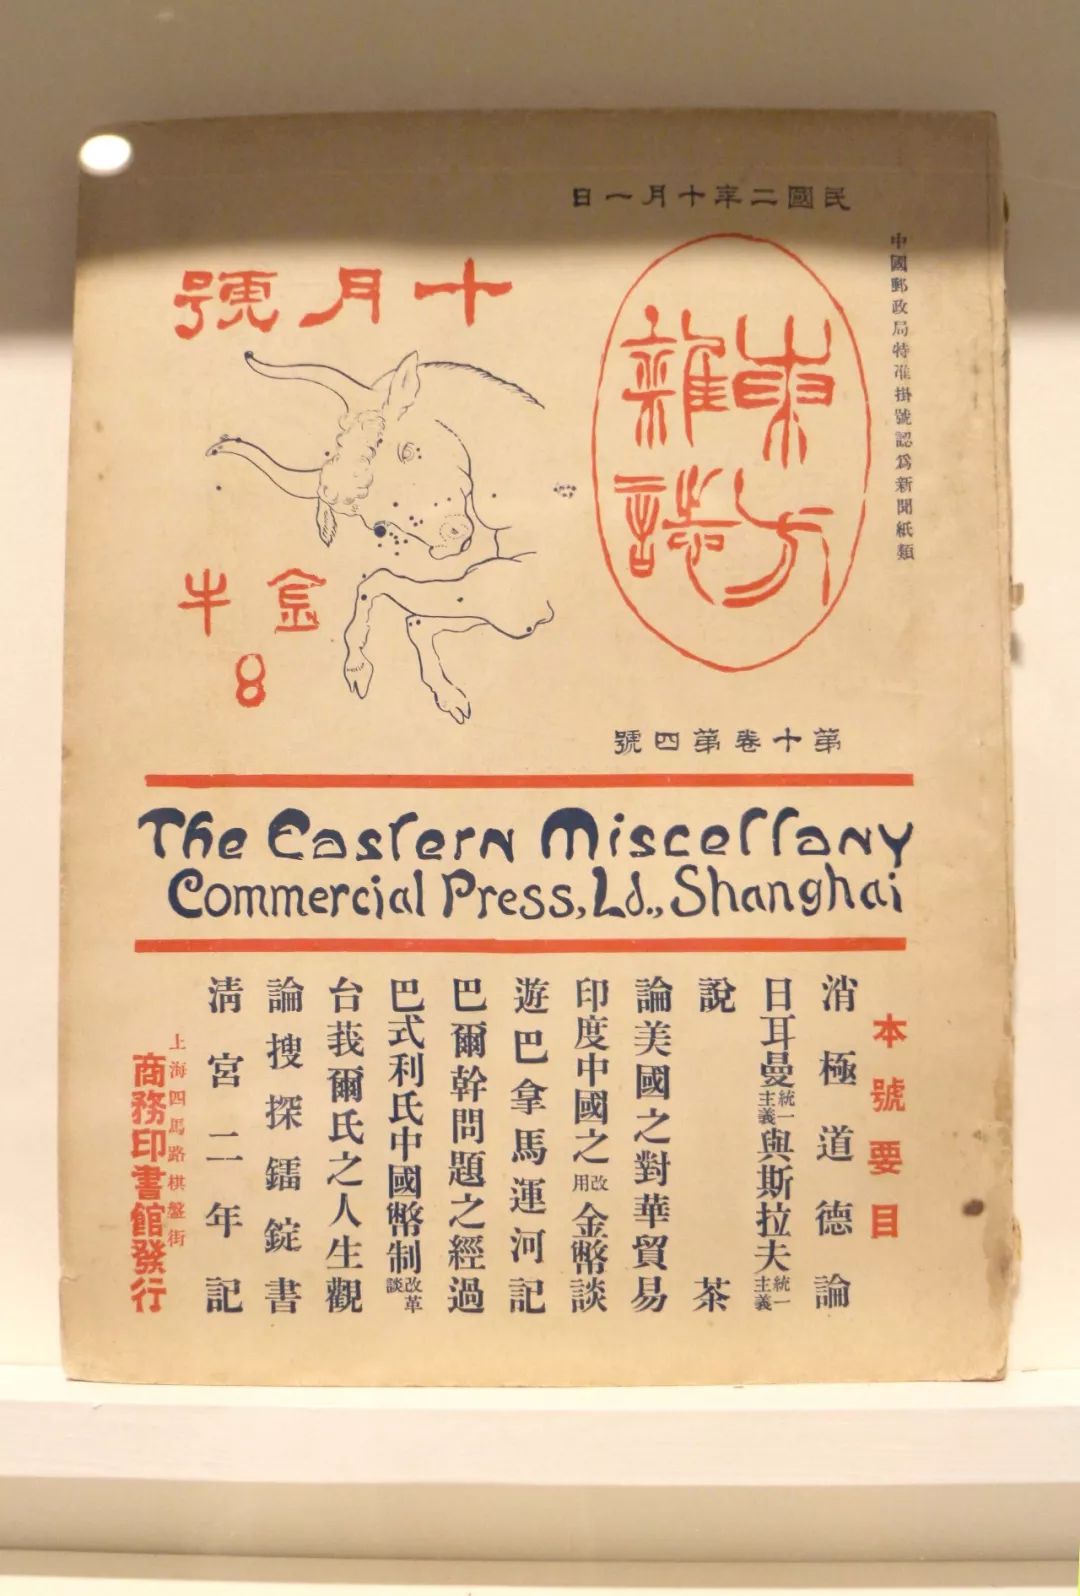 民國二年十月一日
中國郵政局特准掛號認爲新聞紙類
東方
雜誌
十月號
金牛
8
第十卷第四號
The Eastern Miscellany
Commercial Press, Ld., Shanghai
本號要目
消極道德論
日耳曼統一主義與斯拉夫統一主義
說茶
論美國之對華貿易
印度中國之改用金幣談
遊巴拿馬運河記
巴爾幹問題之經過
巴式利氏中國幣制改革談
台莪爾氏之人生觀
論搜探鐳錠書
淸宮二年記
上海四馬路棋盤街
商務印書館發行